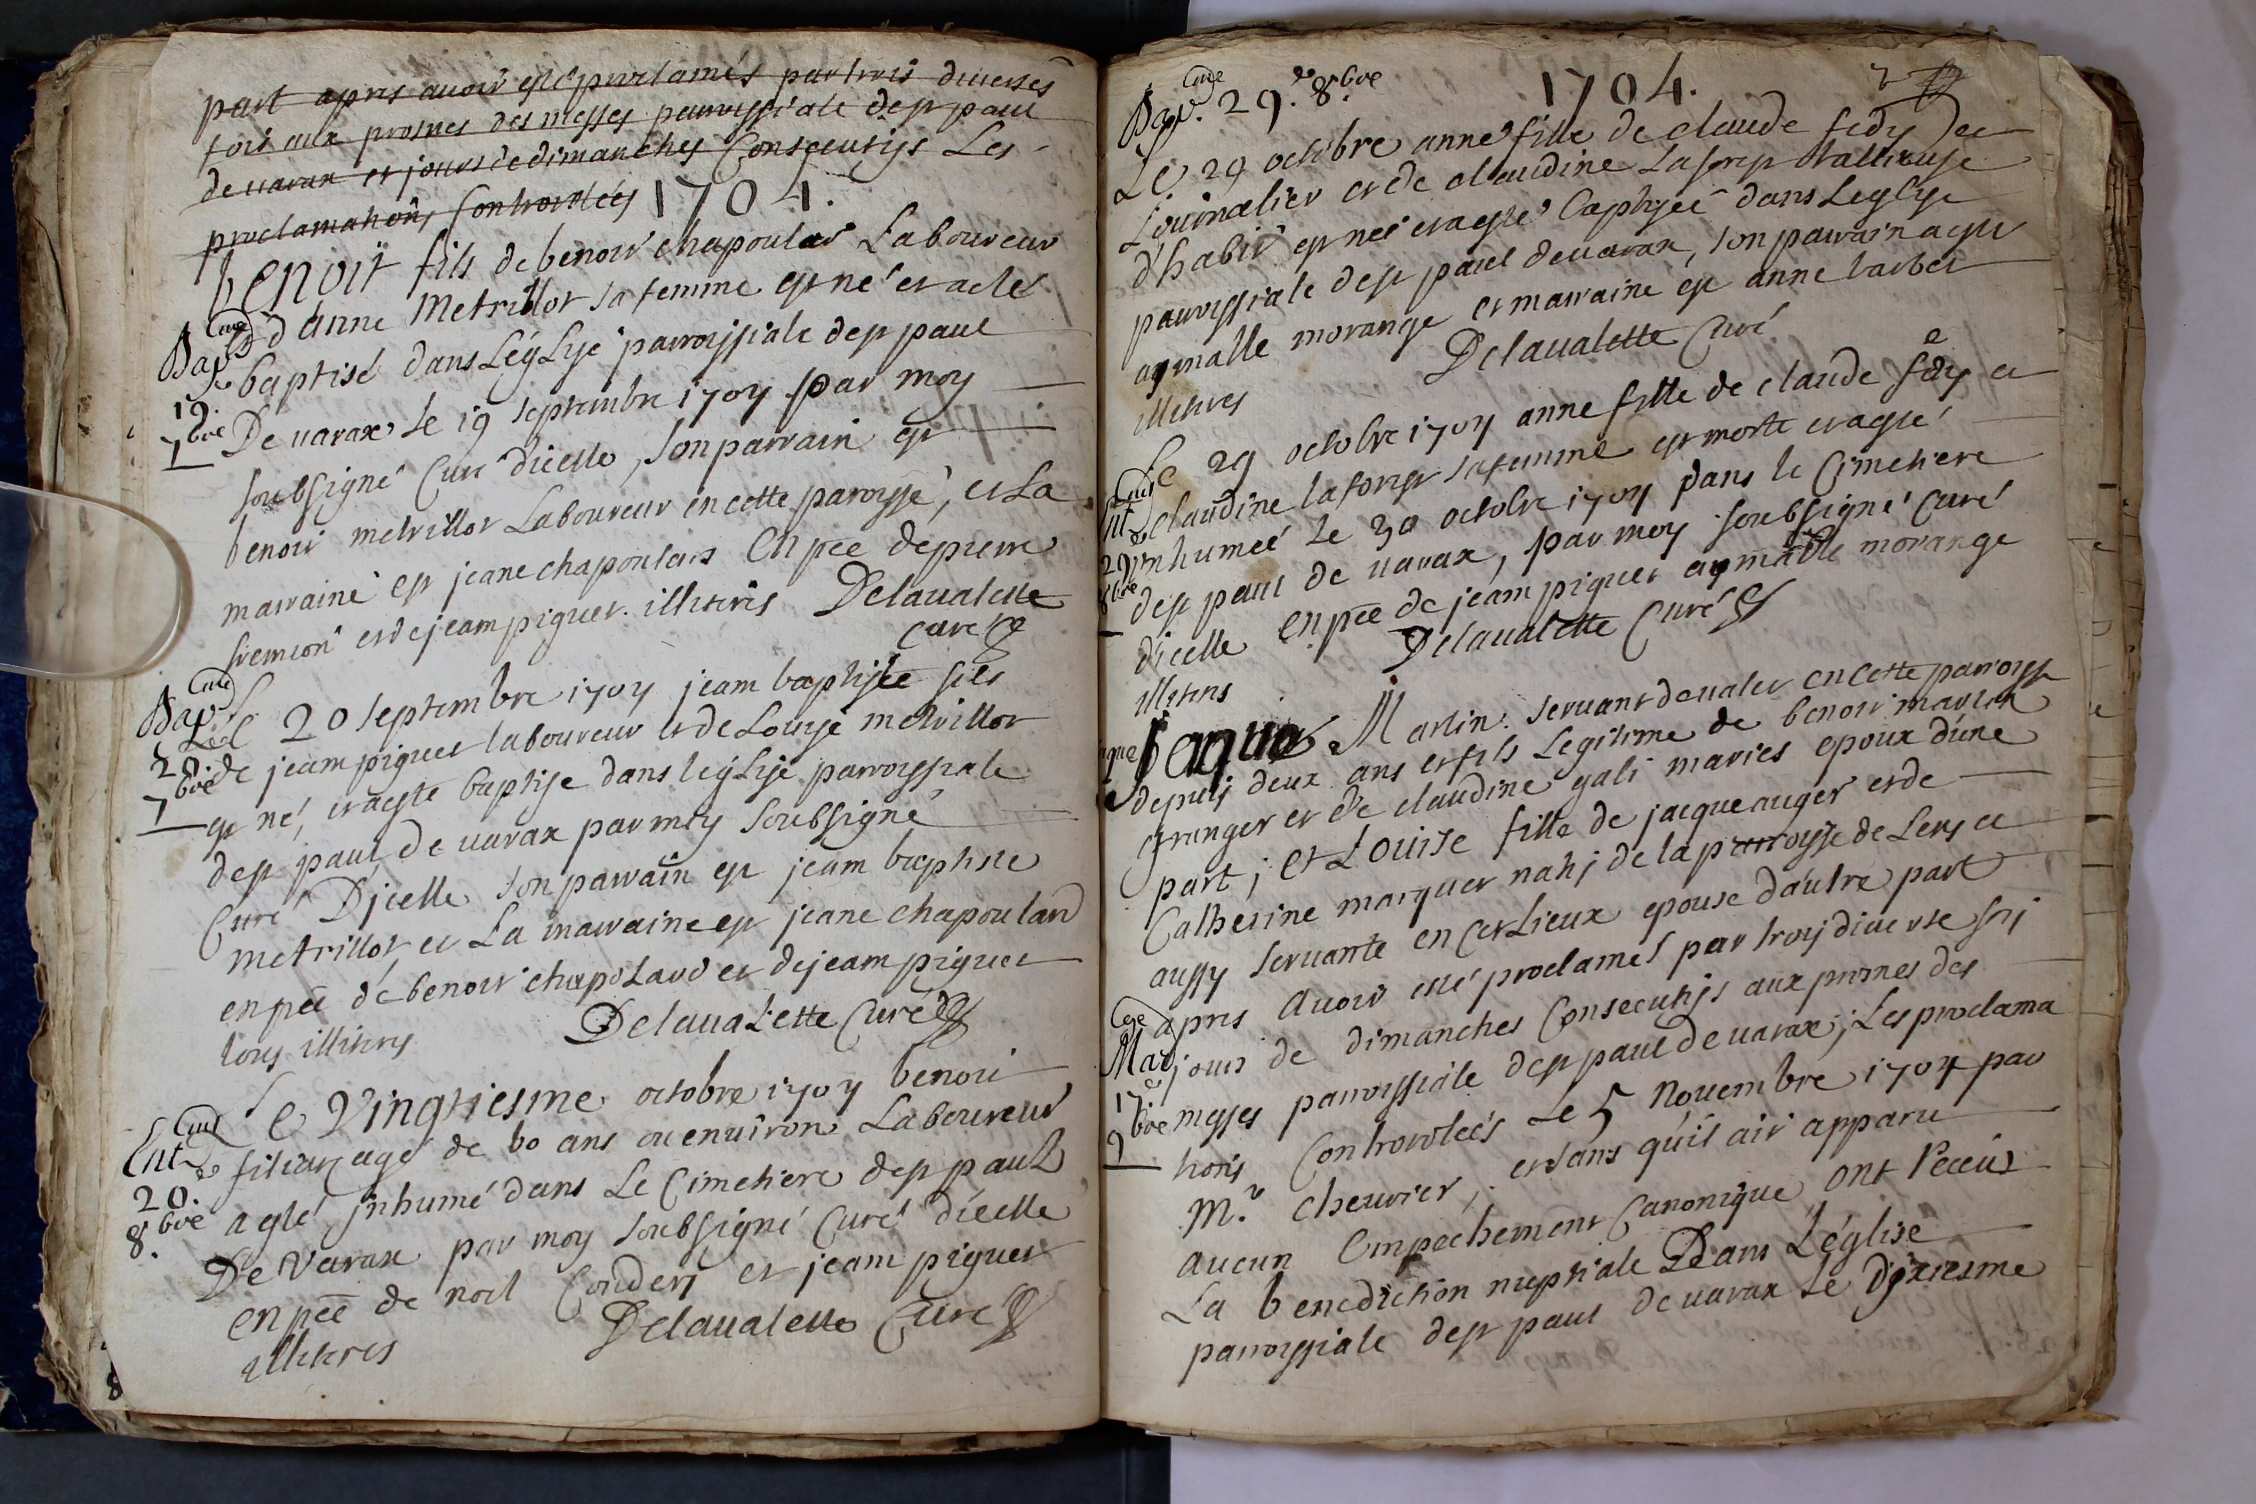 part apres auoir esté proclamés par trois diuerses
fois aux prosnes des messes parroissiale de st paul
de uarax et jours de dimanches Consecutifs Les
proclamations Controolées
1704.
benoit fils de benoit chapoular Laboureur
et d'anne Metrillot sa femme est né et a esté
Bap
baptisé dans L'églyse parroissiale de st paul
19.
7bre
De uarax le 19 septembre 1704 par moy
soubsigné Curé dicelle, son parrain est
benoit metrillot Laboureur en cette paroysse, et La
marraine est jeane chapoulars En pce de pierre
et de jeam piguet. illiteres Delaualette
Curé
Bap
Le 20 septembre 1704 jeam baptiste fils
20.
7bre
de jeam piguet laboureur et de Louyse metrillot
est né, et a esté baptise dans leglyse parroyssiale
de st paul de uarax par moy soubsigné
Curé Djcelle son parrain est jeam baptiste
metrillot et La marraine est jeane chapoulard
en pce de benoit chapolard et de jeam piguet
tous illiters Delaualette Curé
Le Vingtiesme octobre 1704 benoit
Ent
agé de 60 ans ou enuiron Laboureur
20.
8.bre
a esté jnhumé dans Le Cimetiere de st paul
De Varax par moy soubsigné Curé dicelle
en pce de noel et jeam piguet
illiteres Delaualette Curé
Bap. 29. 8.bre
1704.
Le 29 octobre anne fille de claude et
Journalier et de claudine Laforest
d'habit est née et a esté baptisée dans Leglyse
parroyssiale de st paul de uarax, son parrain a esté
aymable morange et marraine est anne barbet
illiteres Delaualette Curé
Le 29 octobre 1704 anne fille de claude et
Ent
de claudine laforest sa femme est morte et a esté
29
8bre
inhumeé le 30 octobre 1704 dans le Cimetiere
de st paul de uarax, par moy soubsigné Curé
dicelle en pce de jeam piguet aymable morange
illiters Delaualette Curé
Jaque Martin seruant de ualet en cette parroysse
depuis deux ans et fils Legitime de benoit martin
granger et de claudine gali mariés epoux d'une
part; et Louise fille de jacque auger et de
Catherine marquet natif de la parroysse de Lens et
aussy seruante en cet Lieux epouse d'autre part
apres Auoir esté proclamés par trois diuerse fois
Mar
jours de dimanches Consecutifs aux prosnes des
17
9bre
messes parroyssiale de st paul de uarax; Les proclama
tions Controolées Le 5 nouembre 1704 par
Mr. cheurier, et sans qu'il ait apparu
aucun Empechement Canonique ont receus
La benediction nuptiale Dans L'église
parroyssiale de st paul de uarax le Dixiesme